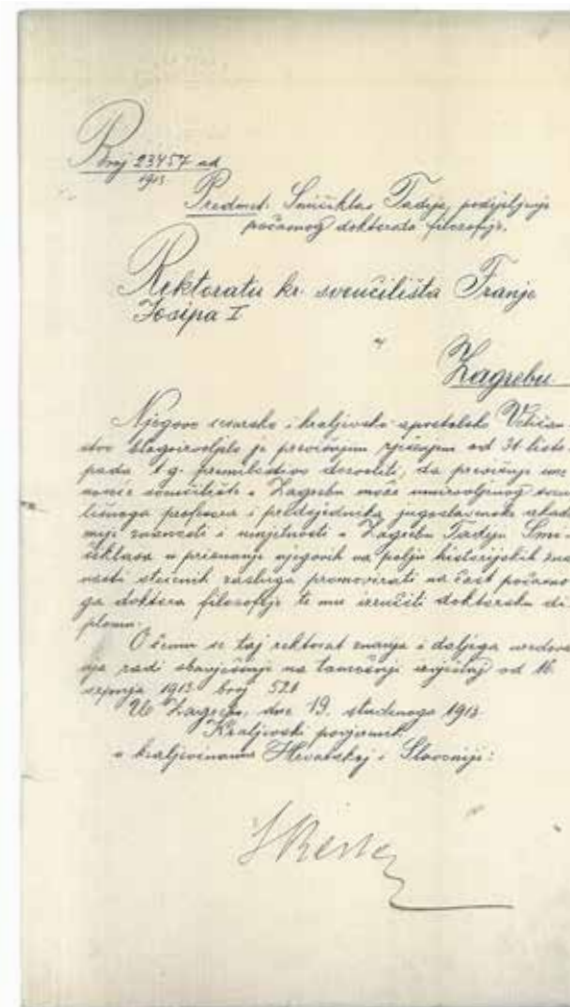 Broj 23457 ad
1913
Predmet: Smičiklas Tadija, podijeljenje
počasnog doktorata filozofije.
Rektoratu kr. sveučilišta Franje
Josipa I
u
Zagrebu
Njegovo cesarsko i kraljevsko apostolsko Veličan-
stvo blagoizvoljelo je previšnjim rješenjem od 31 listo-
pada t. g. premilostivo dozvoliti, da previšnje ime
noseće sveučilište u Zagrebu može umirovljenog sveuči
lišnoga profesora i predsjednika jugoslavenske akade
mije znanosti i umjetnosti u Zagrebu Tadiju Smi-
čiklasa u priznanju njegovih na polju historijskih zna
nosti stečenih zasluga promovirati na čast počasno
ga doktora filozofije te mu izručiti doktorsku di
plomu.
O čemu se taj rektorat znanja i daljega uredova
nja radi obavješćuje na tamošnji izvještaj od 16.
srpnja 1913 broj 521
U Zagrebu, dne 19. studenoga 1913.
Kraljevski povjerenik
u kraljevinama Hrvatskoj i Slavoniji: